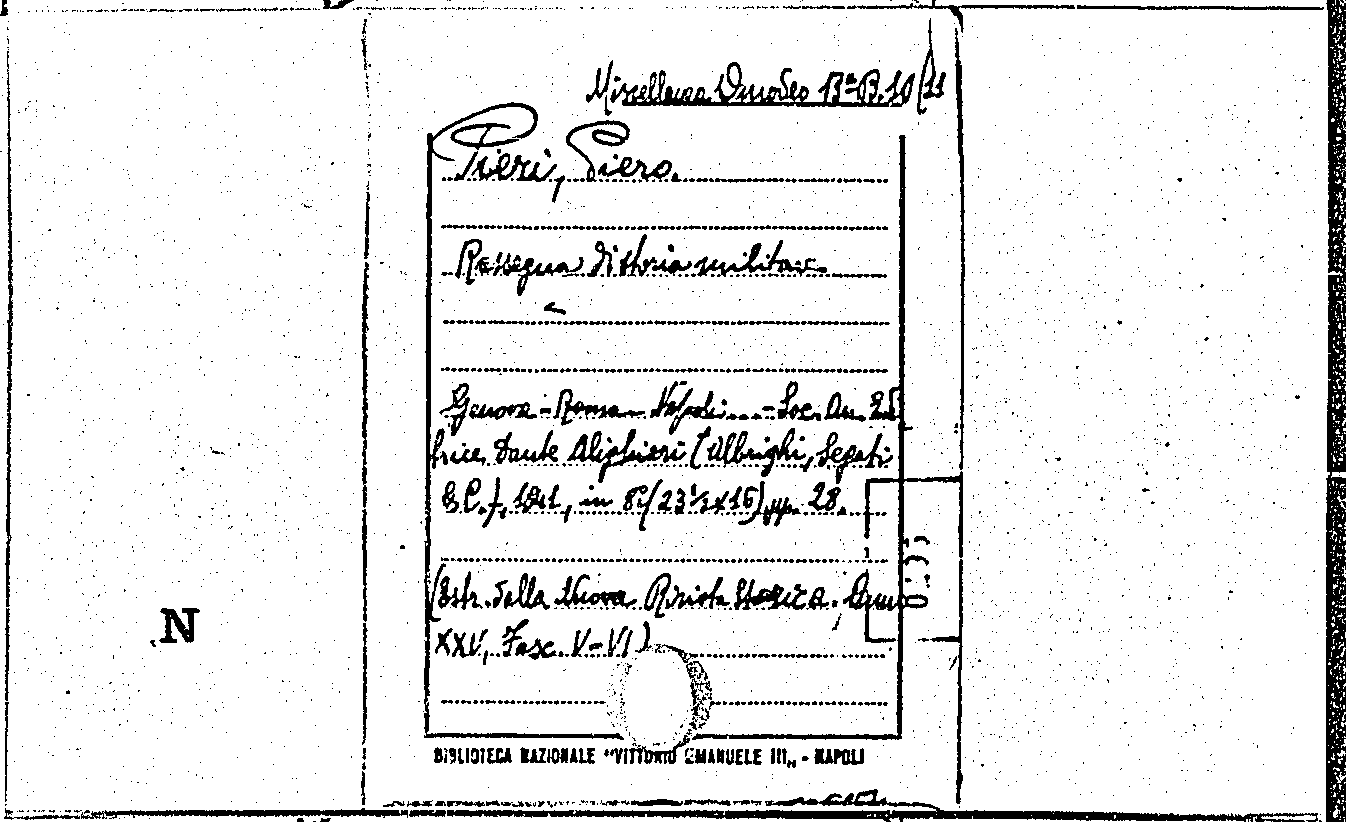 Miscellanea Omodeo Bª B.10/11
Pieri, Piero.
Rassegna di storia militare
Genova - Roma - Napoli - Soc. An. Edi
trice Dante Alighieri (Albrighi, Segati
& C.), 1941, in 8º (23½ x 16), pp. 28.
(Estr. dalla Nuova Rivista Storica. Anno
XXV, Fasc. V-VI)
N
BIBLIOTECA NAZIONALE "VITTORIO EMANUELE III„ - NAPOLI